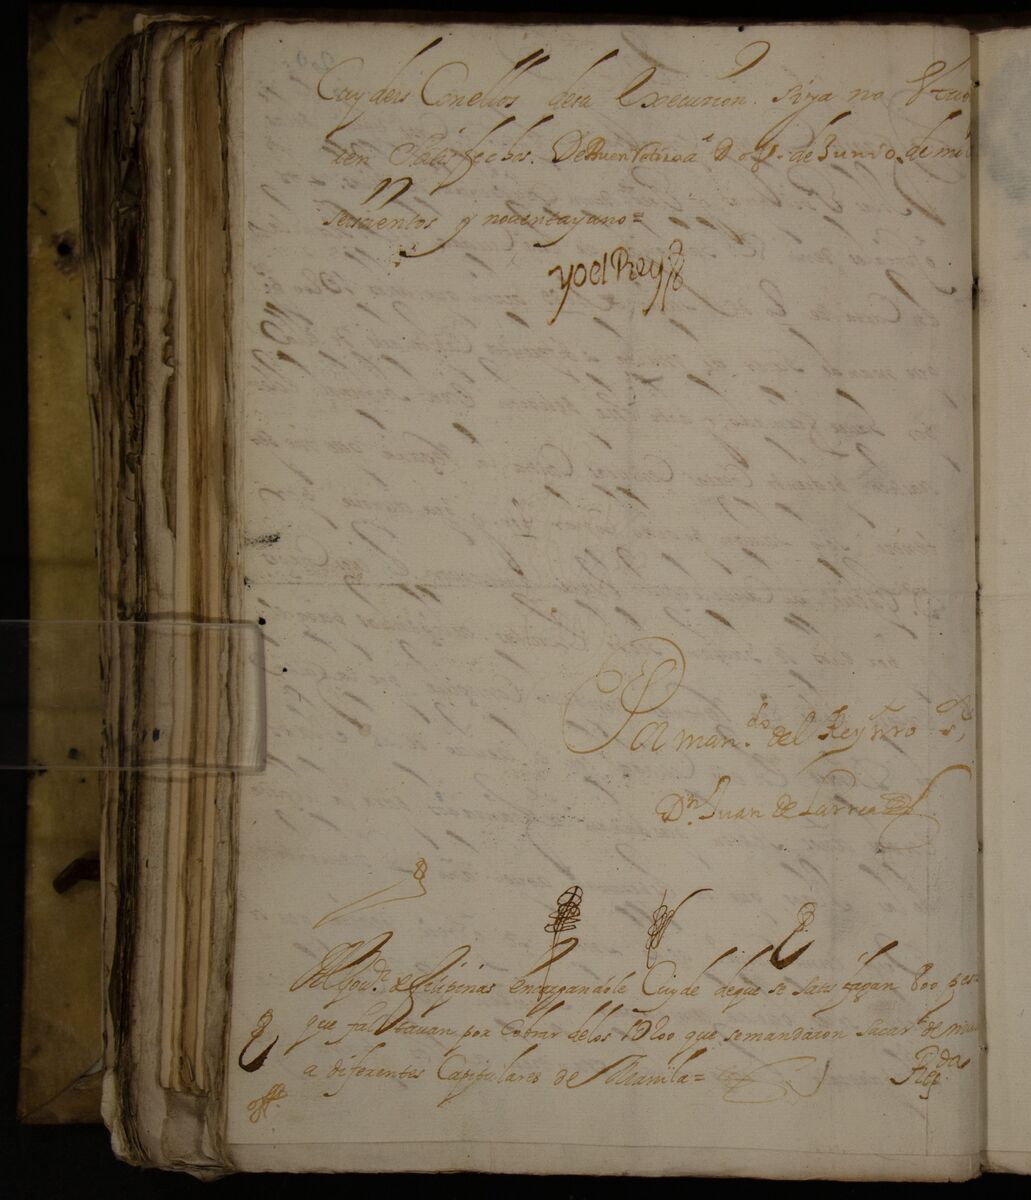 Cuydeis Con ellos desu Execuzion. Siya no Estuv
ieren Satisfechos. De Buen Retiro a de Junio de mil
seiscientos y noventa y uno=
Yo el Rey
Por man.do del Rey nro s.r
Dn Juan de Larrea
Al Gov.r de Filipinas encargandole Cuyde deque se satisfagan 800 pes
que faltavan por Cobrar delos 1U200 que se mandaron sacar de
a diferentes Capitulares de Manila=